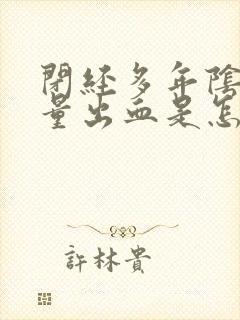 閉經多年陰
量出血是怎
許林貴